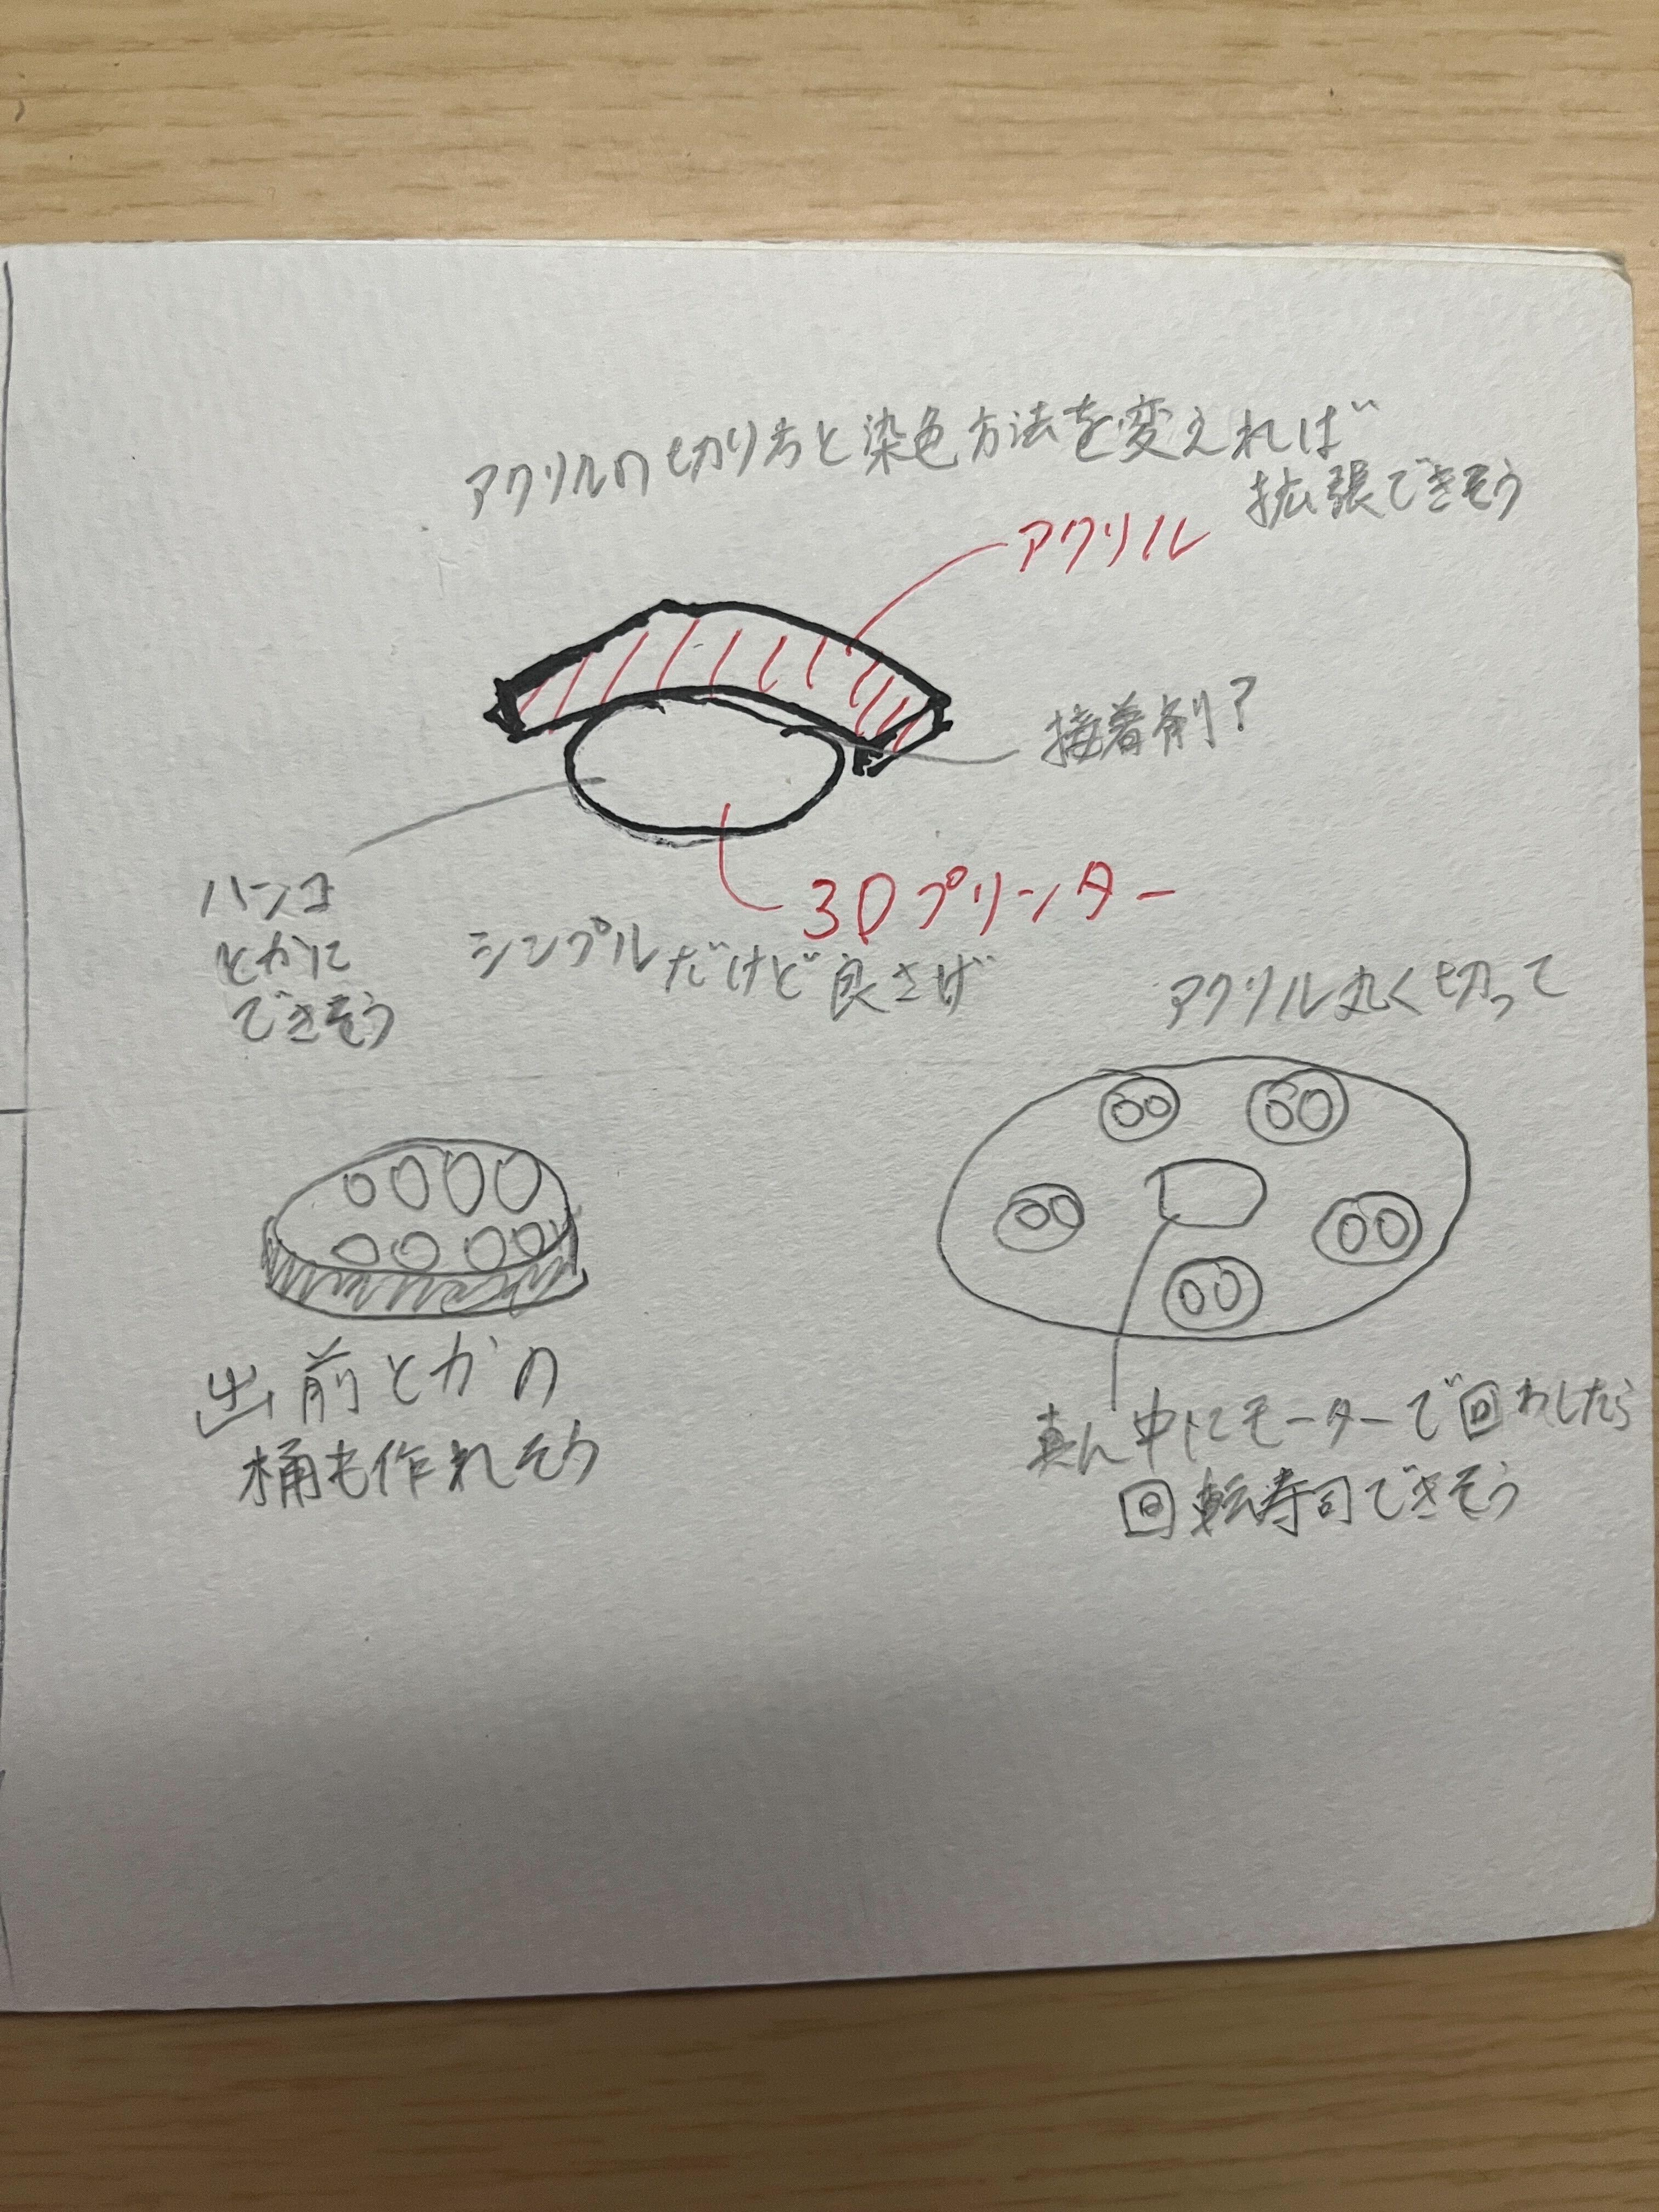 アクリルの切り方と染色方法を変えれば
拡張できそう
アクリル
接着剤?
ハンコ
とかに
できそう
3Dプリンター
シンプルだけど良さげ
アクリル丸く切って
出前とかの
桶も作れそう
真ん中にモーターで回わしたら
回転寿司できそう